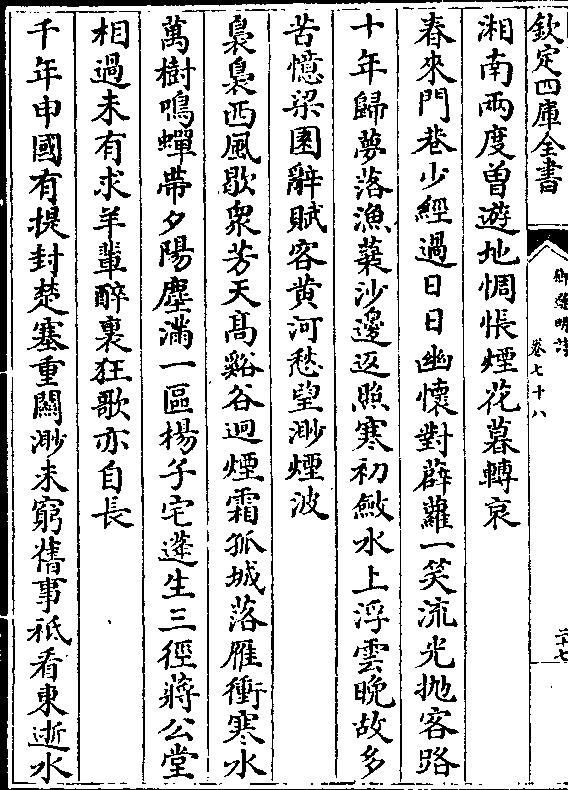 欽定四庫全書
御選明詩
卷七十八
二十七
湘南兩度曾遊地惆悵煙花暮轉哀
春來門巷少經過日日幽懷對薜蘿一笑流光抛客路
十年歸夢落漁蓑沙邊返照寒初斂水上浮雲晚故多
苦憶梁園辭賦客黄河愁望渺煙波
裊裊西風歇衆芳天髙谿谷迥煙霜孤城落雁衝寒水
萬樹鳴蟬帶夕陽塵滿一區楊子宅蓬生三徑蔣公堂
相過未有求羊輩醉裏狂歌亦自長
千年申國有提封楚塞重關渺未窮舊事祗看東逝水